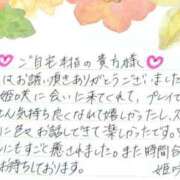 ♡ ご自宅本指の貴方様 ♡
はお誘い頂きありがとうございました
姫咲に会いに来てくれて、プレイで
とん気持ち良くなれて嬉しかったし、ス
に色々お話しできて楽しかったです。
にもすご癒されました。また時間合
お待ちしております。
姫咲